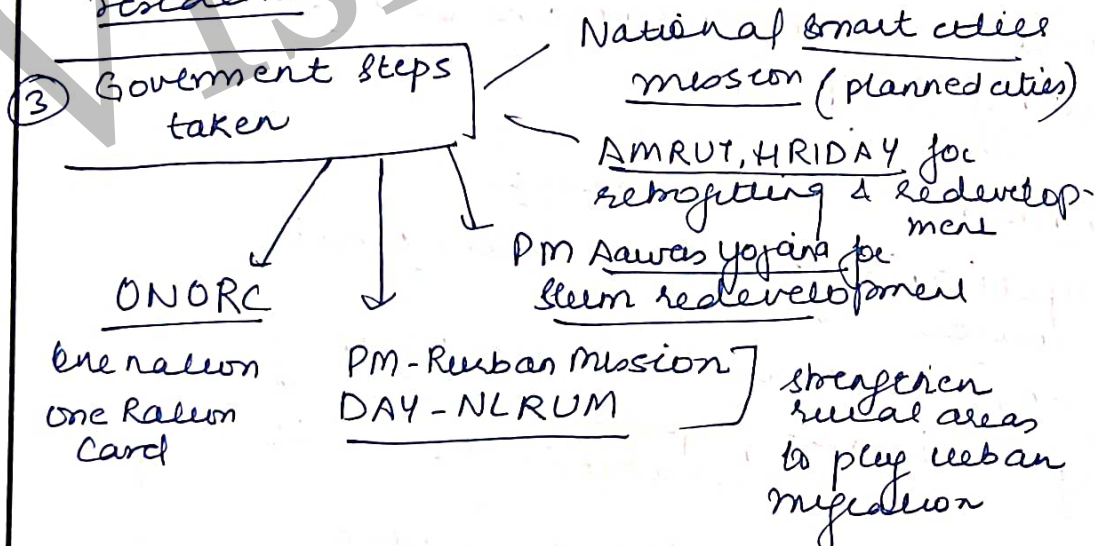 ③ Goverment steps
taken
National smart cities
mission (planned cities)
AMRUT, HRIDAY for
retrofitting & redevelop-
ment
PM Aawas yojana for
slum redevelopment
ONORC
One nation
one Ration
Card
PM-Rurban Mission
DAY-NLRUM
strengthen
rural areas
to plug urban
migration